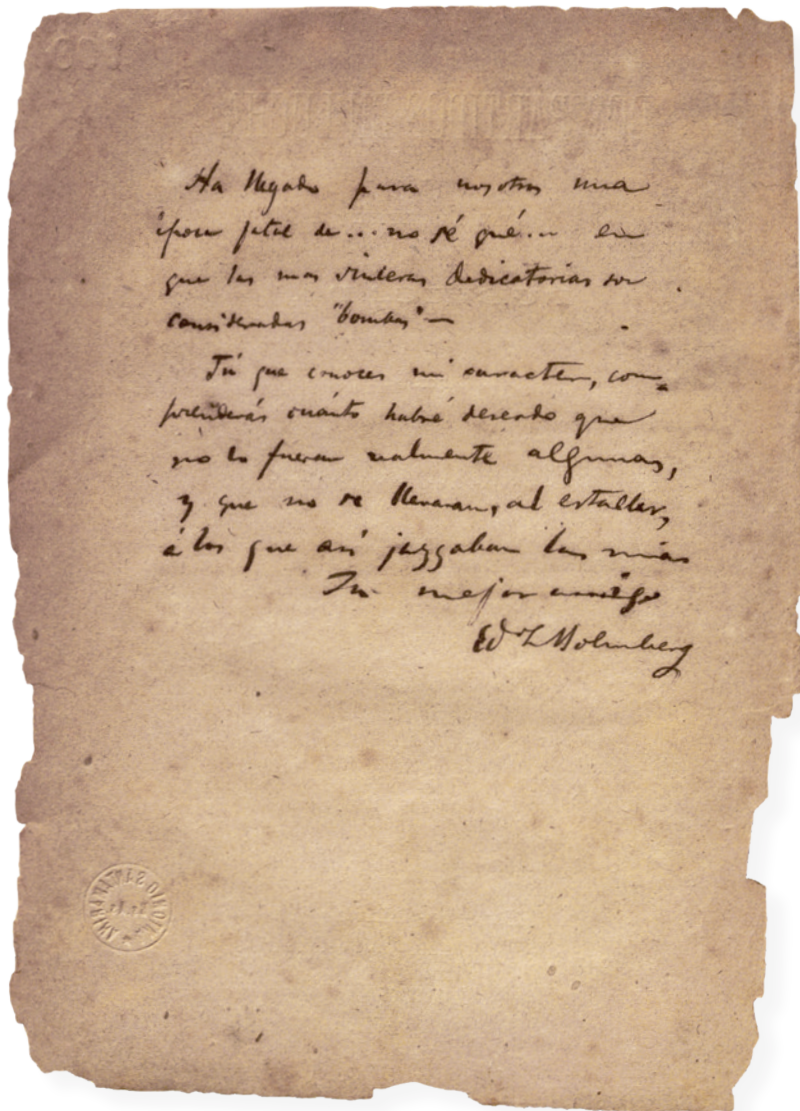 Ha llegado para nosotros una
época fatal de... no sé qué... en
que las mas sinceras dedicatorias son
consideradas "bombas" —
Tú que conoces mi caracter, com-
prenderás cuánto habré deseado que
no lo fueran realmente algunas,
y que no se llevaran, al estallar,
á los que así juzgaban las mias
Tu mejor amigo
Ed L Holmberg